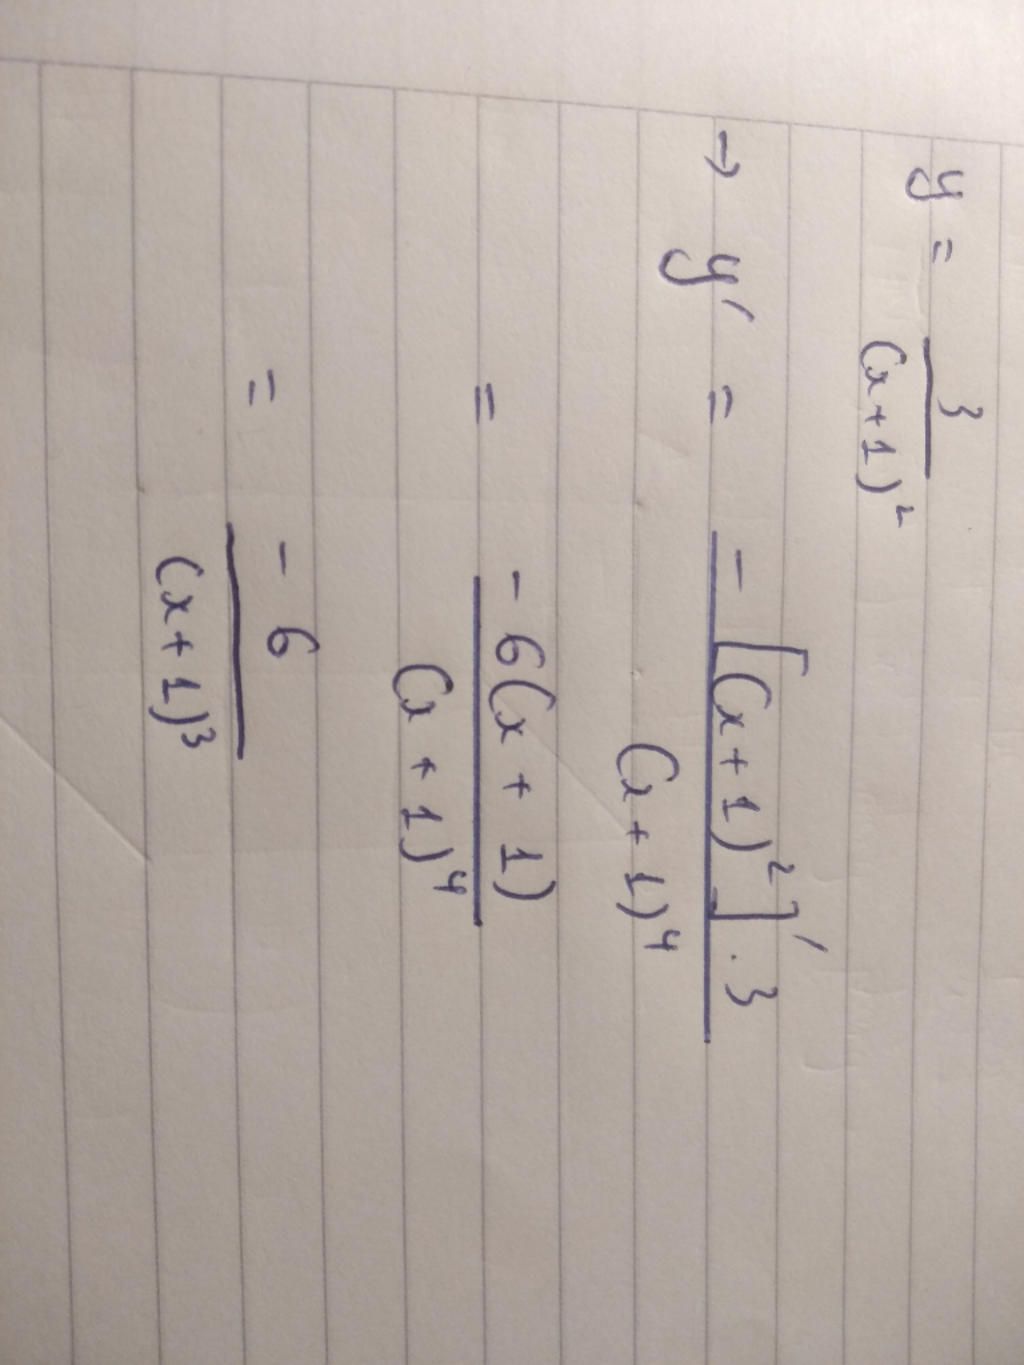 y = 3/(x+1)²
→ y' = -[(x+1)²]'.3/(x+1)⁴
= -6(x+1)/(x+1)⁴
= -6/(x+1)³